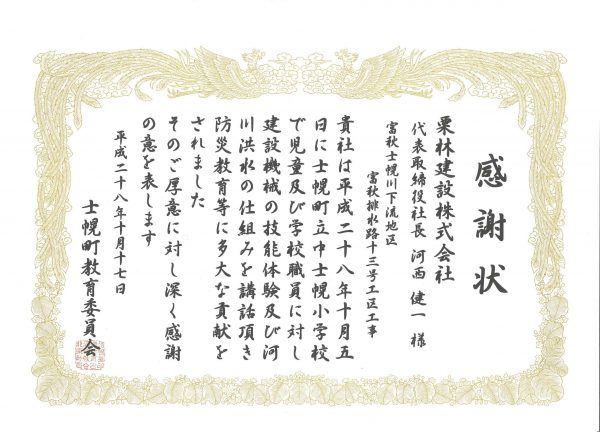 感謝状
栗林建設株式会社
代表取締役社長 河西 健一 様
富秋士幌川下流地区
富秋排水路十三号工区工事
貴社は平成二十八年十月五
日に士幌町立中士幌小学校
で児童及び学校職員に対し
建設機械の技能体験及び河
川洪水の仕組みを講話頂き
防災教育等に多大な貢献を
されました
そのご厚意に対し深く感謝
の意を表します
平成二十八年十月十七日
士幌町教育委員会